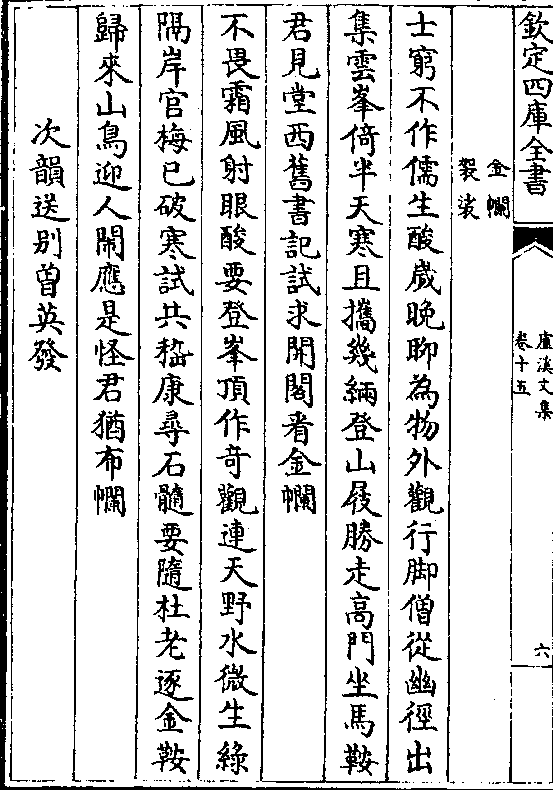 欽定四庫全書
盧溪文集
卷十五
六
金襴
袈裟
士窮不作儒生酸歲晚聊為物外觀行脚僧從幽徑出
集雲峯倚半天寒且攜幾緉登山屐勝走高門坐馬鞍
君見堂西舊書記試求開閤看金襴
不畏霜風射眼酸要登峯頂作竒觀連天野水微生綠
隔岸官梅已破寒試共嵇康尋石髓要隨杜老逐金鞍
歸來山鳥迎人鬧應是怪君猶布襴
次韻送别曽英發